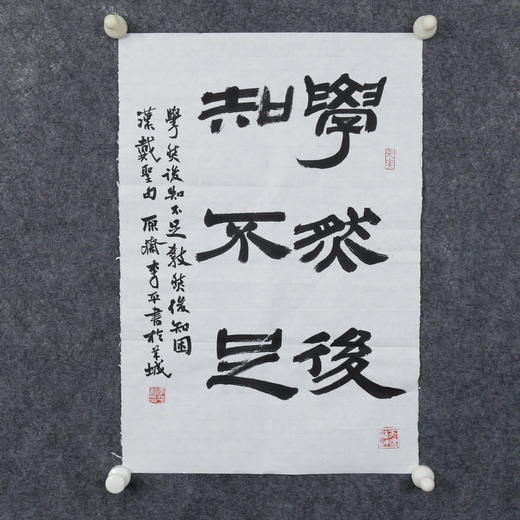 學然後
知不足
學然後知不足教然後知困
漢戴聖句原齋李平書於羊城